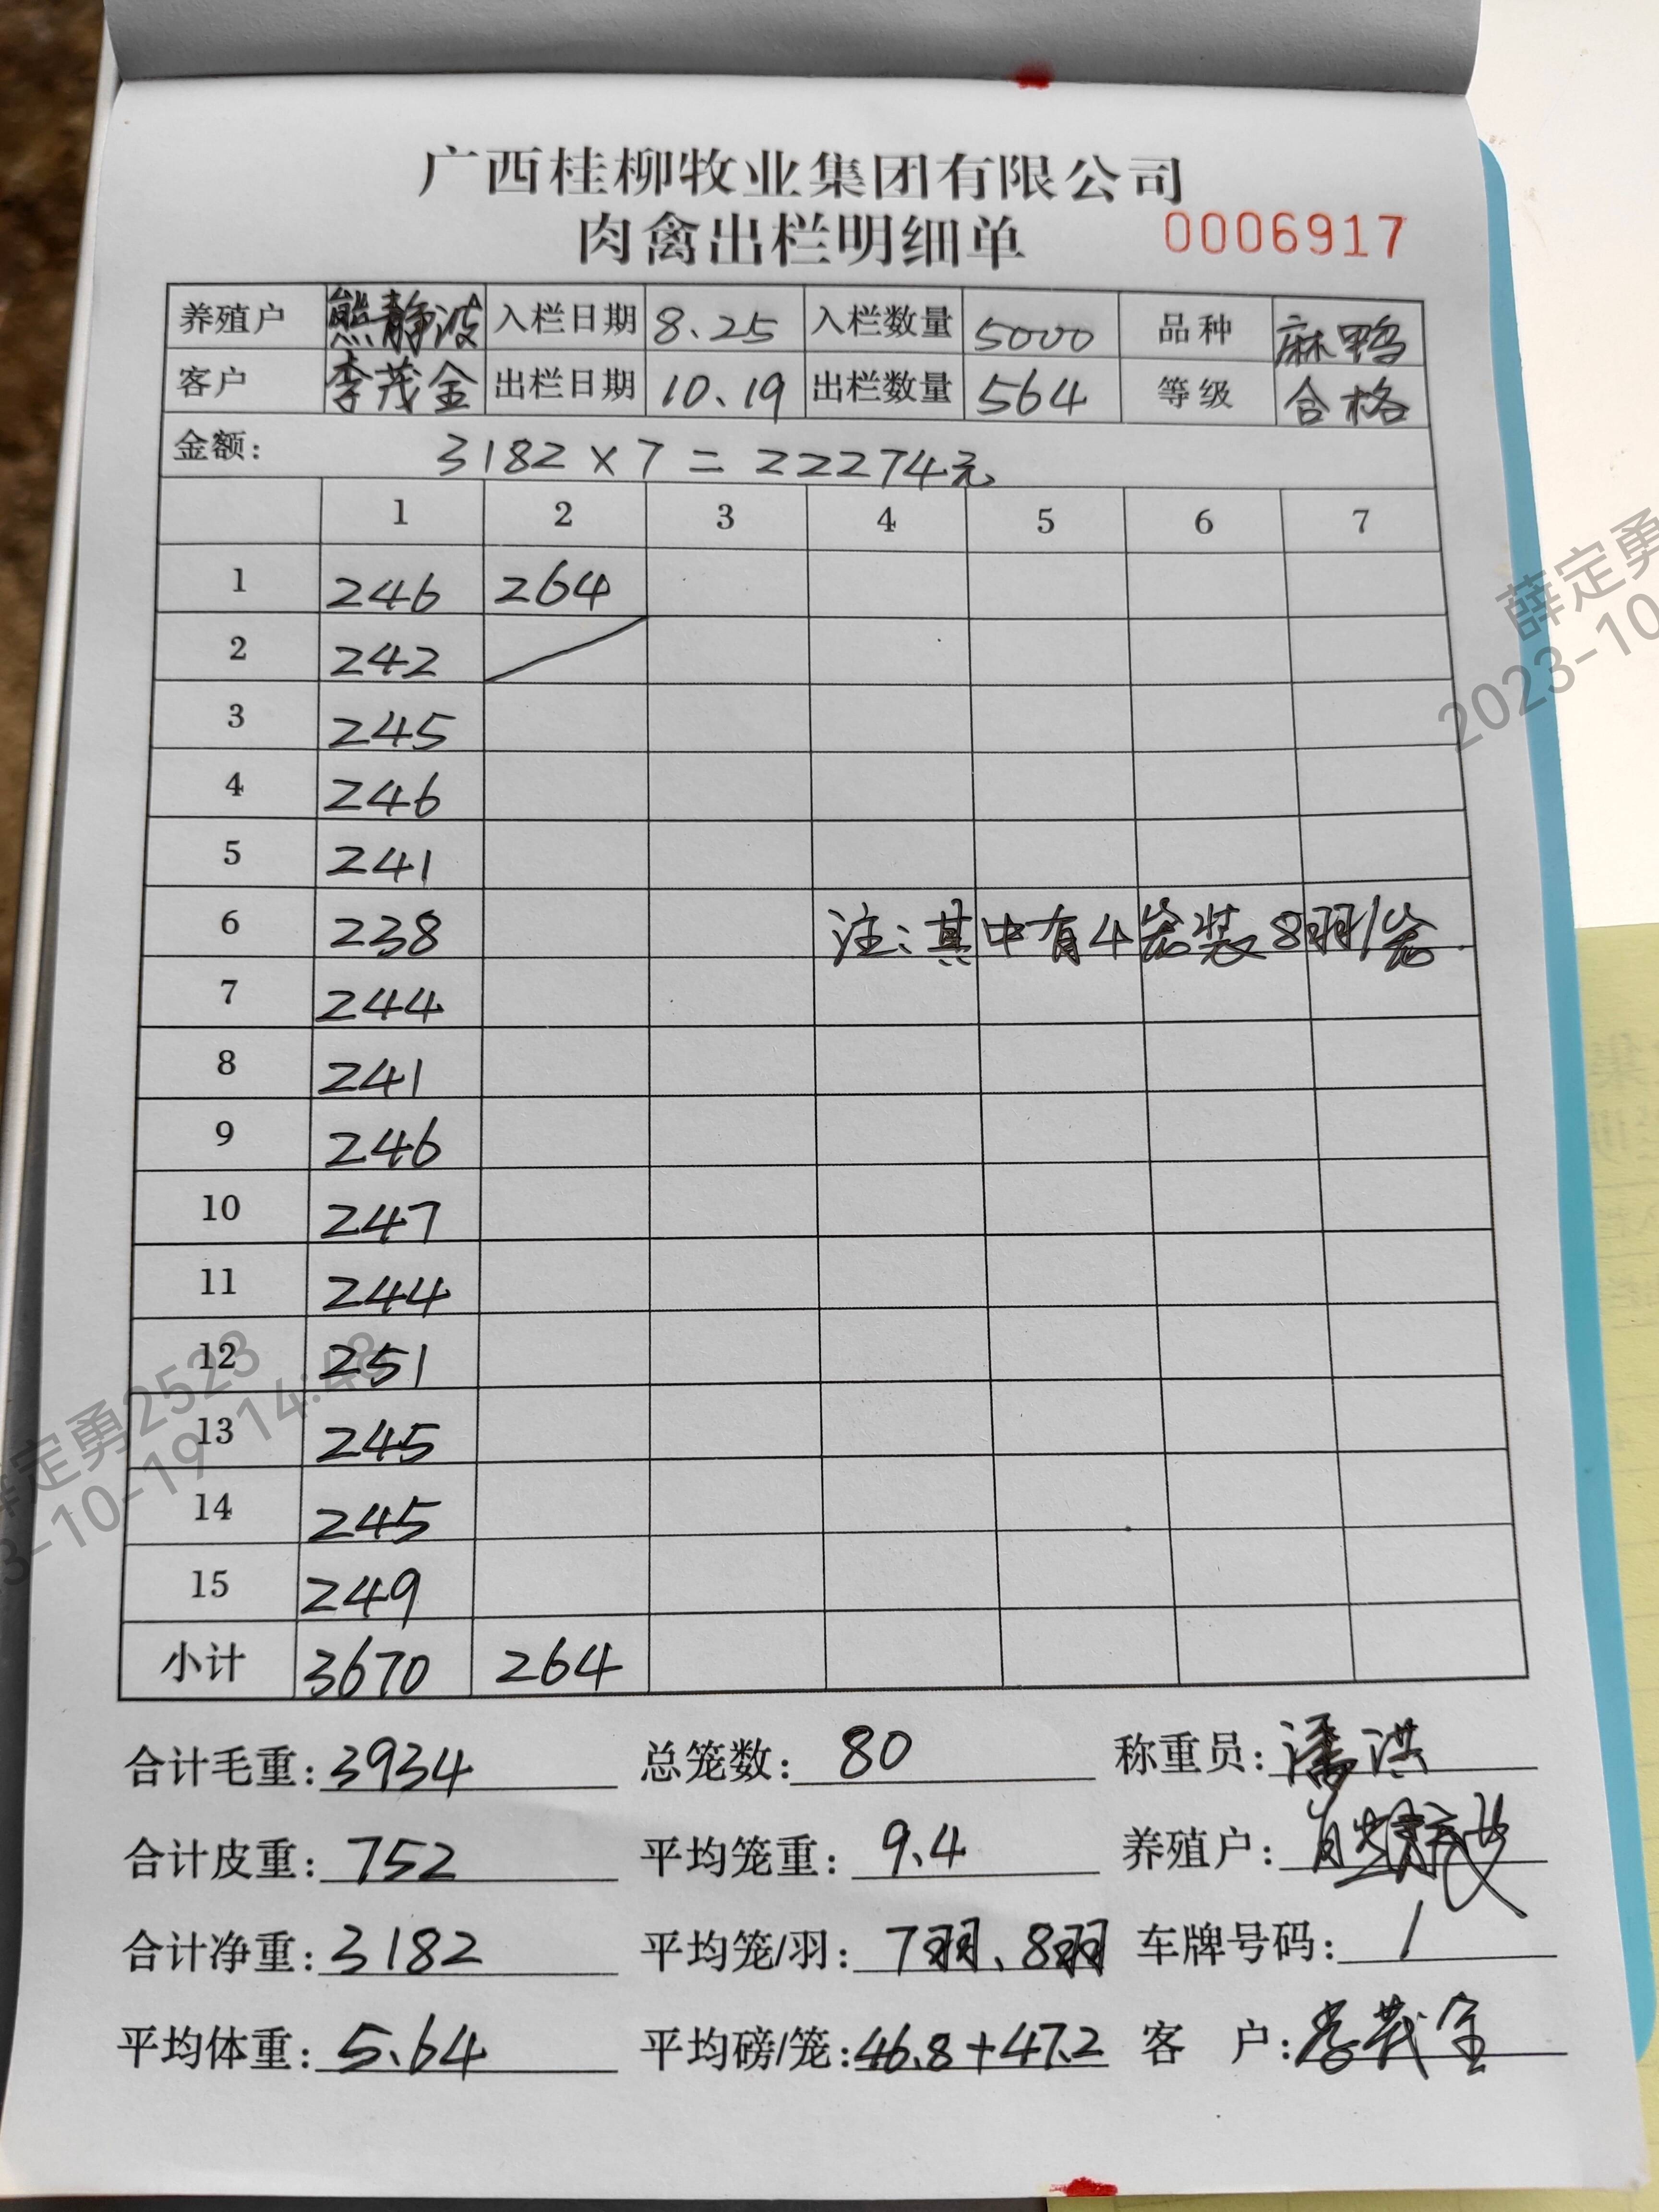 广西桂柳牧业集团有限公司
肉禽出栏明细单 0006917
养殖户 熊静波 入栏日期 8.25 入栏数量 5000 品种 麻鸭
客户 李茂金 出栏日期 10.19 出栏数量 564 等级 合格
金额: 3182×7=22274元
1 2 3 4 5 6 7
1 246 264
2 242
3 245
4 246
5 241
6 238 注:其中有4笼装8羽/笼
7 244
8 241
9 246
10 247
11 244
12 251
13 245
14 245
15 249
小计 3670 264
合计毛重:3934 总笼数:80 称重员:潘洪
合计皮重:752 平均笼重:9.4 养殖户:熊静波
合计净重:3182 平均笼/羽:7羽、8羽 车牌号码:/
平均体重:5.64 平均磅/笼:46.8+47.2 客 户:李茂金
薛定勇
2023-10
薛定勇2523
3-10-19 14:48